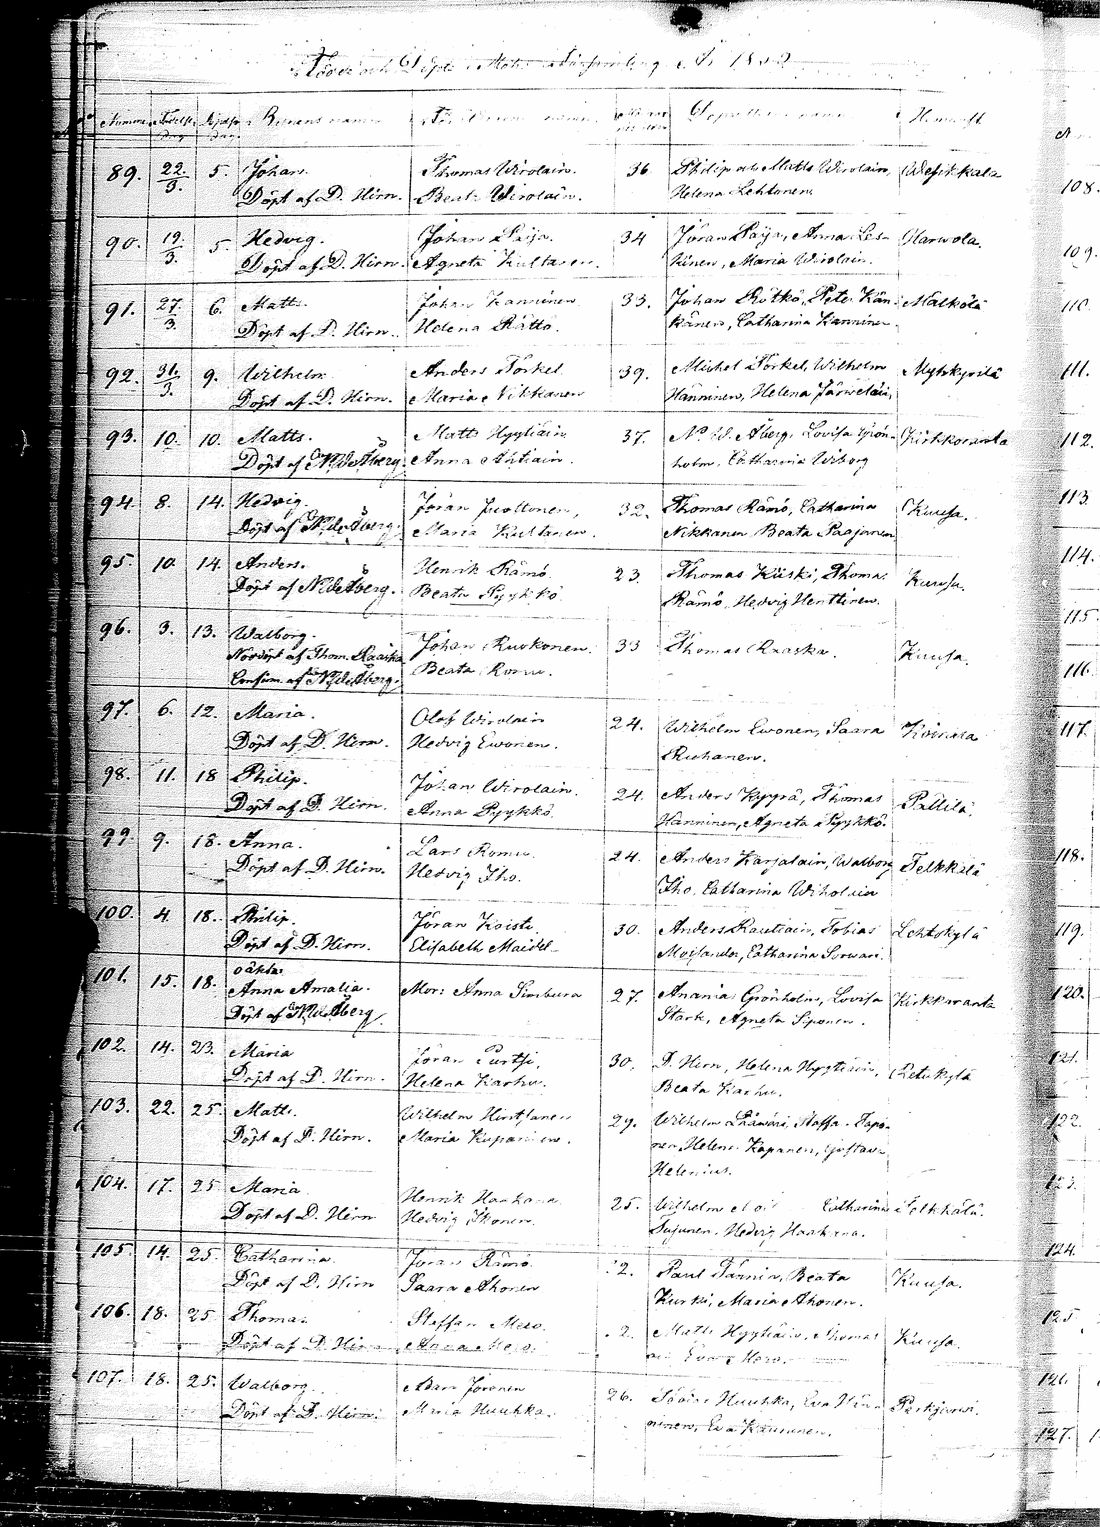 Födde och Döpte i Mola Församling År 18
Nummer Födelse dag Döpelse dag Barnens namn Föräldrarnes namn Moderns ålder Hemvist
89. 22/3. 5. Johan. Thomas Wirolain. 36 Philip och Matts Wirolain, Wesikkala
Döpt af D. Hirn. Beata Wirolain. Helena Lehtonen.
90. 19/3. 5. Hedvig. Johan Paija. 34 Jöran Paija, Anna Les- Harwola.
Döpt af D. Hirn. Agneta Kultanen. kinen, Maria Wirolain.
91. 27/3 6. Matts. Johan Kanninen 33. Johan Rötkö, Peter Kän- Mälkölä
Döpt af D. Hirn. Helena Rättö. känen, Catharina Kanninen.
92. 31/3. 9. Wilhelm. Anders Torkel. 39. Michel Torkel, Wilhelm
Döpt af D. Hirn. Maria Nikkanen Hänninen, Helena Järweläin,
93. 10. 10. Matts. Matts Hyytiäin 37. Åberg, Lovisa Grön- Kirkkoranta
Döpt af Åberg. Anna Ahtiain. holm, Catharina Wiborg
94. 8. 14. Hedvig. Jöran Juoltonen, 32. Thomas Rämö, Catharina Kuusa.
Döpt af Åberg. Maria Kultanen. Nikkanen Beata Paajanen
95. 10. 14. Anders. Henrik Rämö. 23. Thomas Kiiski, Thomas Kuusa.
Döpt af Åberg. Beata Pyykkö. Rämö, Hedvig Henttinen.
96. 3. 13. Walborg. Johan Ruokonen. 33 Thomas Raaska. Kuusa.
Nöddöpt af Thom. Raaska Beata Romu.
Confirm. af Åberg.
97. 6. 12. Maria. Olof Wirolain 24. Wilhelm Ewonen, Saara
Döpt af D. Hirn. Hedvig Ewonen. Ruhanen.
98. 11. 18 Philip. Johan Wirolain. 24. Anders Kyyrä, Thomas Pällilä.
Döpt af D. Hirn. Anna Pyykkö. Hänninen, Agneta Pyykkö.
99. 9. 18. Anna. Lars Romu. 24. Anders Karjalain, Walborg Telkkälä
Döpt af D. Hirn. Hedvig Iho. Iho, Catharina Wiholain
100. 4. 18. Philip. Jöran Koisti. 30. Anders Rautiain, Tobias Lehtokylä
Döpt af D. Hirn. Elisabeth Maidel Moilander, Catharina Sorwari.
101. 15. 18. oäkta Anna Amalia. Mor: Anna Simbura 27. Ananias Grönholm, Lovisa Kirkkoranta
Döpt af Åberg Stark, Agneta Siponen.
102. 14. 23. Maria Jöran Purtsi, 30. D. Hirn, Helena Hyytiäin,
Döpt af D. Hirn. Helena Karhu. Beata Karhu.
103. 22. 25. Matts. Wilhelm 29. Wilhelm Staffan Tapo-
Döpt af D. Hirn. Maria Kupariinen. nen, Helena Kopanen, Gustava
Helenius.
104. 17. 25 Maria. Henrik Haakana 25. Wilhelm Catharina Telkkälä.
Döpt af D. Hirn Hedvig Ikonen. Sujunen, Hedvig Haakana.
105. 14. 25. Catharina. Jöran Rämö. 2. Paul Tarnin, Beata Kuusa.
Döpt af D. Hirn Saara Ahonen Kurki, Maria Ahonen.
106. 18. 25. Thomas. Staffan Mero. 2. Matts Hyytiäin, Thomas Kuusa.
Döpt af D. Hirn Anna Mero. Eva Mero.
107. 18. 25. Walborg. Adam Joronen 26. Tobias Huuhka, Eva Hän- Perkjärwi.
Döpt af D. Hirn. Maria Huuhka. ninen, Eva Kauninen.
108.
109.
110.
111.
112.
113.
114.
115
116
117.
118.
119.
120.
121.
122.
123.
124.
125.
126.
127.